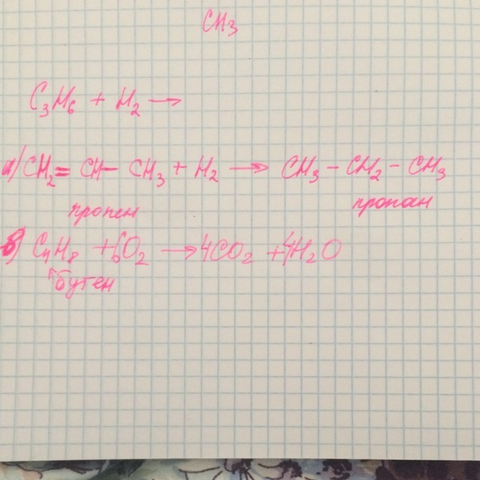 CH3
C3H6 + H2 →
а) CH2 = CH — CH3 + H2 → CH3 — CH2 — CH3
пропен пропан
в) C4H8 + 6O2 → 4CO2 + 4H2O
↖ бутен